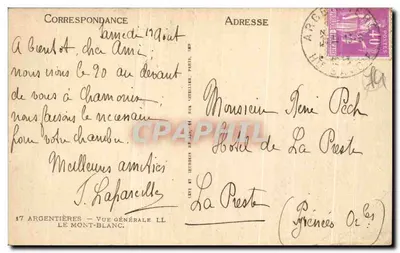 CORRESPONDANCE
ADRESSE
Samedi 17 Août
A bientôt, cher Ami
nous irons le 20 au devant
de vous à Chamonix
nous faisons le nécessaire
pour votre chambre.
Meilleures amitiés
Monsieur René Pech
Hôtel de La Preste
La Preste
(Pyrénées Oles)
17 ARGENTIÈRES - VUE GÉNÉRALE LL
LE MONT-BLANC.